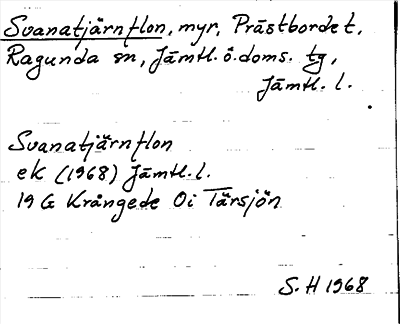 Svanatjärnflon, myr, Prästbordet,
Ragunda sn, Jämtl. ö. doms. tg,
Jämtl. l.
Svanatjärnflon
ek (1968) Jämtl. l.
19 G Krångede Oi Tärsjön
S. H 1968